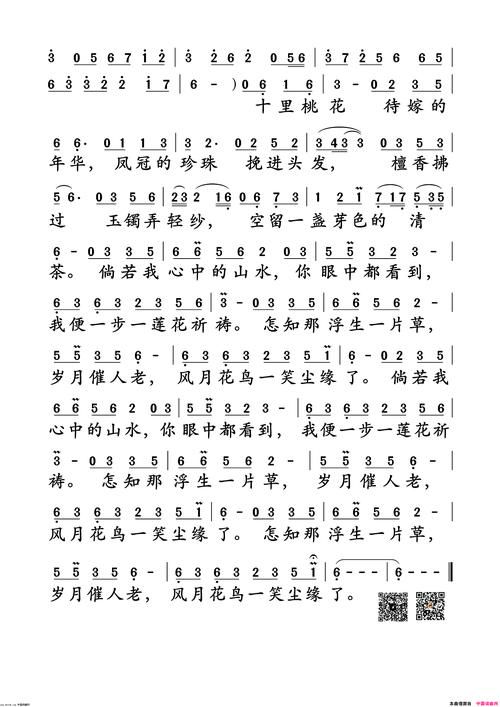 3 0567 12 | 3 262 0 56 | 3 7256 65
6332 22 17 | 6 - ) 06 16 | 3 - 02 35
十里桃花 待嫁的
6 6· 01 13 | 3 2· 02 52 | 3 3433 03 53
年华，凤冠的珍珠 挽进头发，檀香拂
56· 03 56 | 232 16 06 73 | 1 21 717 535
过 玉镯弄轻纱，空留一盏芽色的清
6 - 03 35 | 66 562 02 03 | 55 32 - |
茶。倘若我心中的山水，你眼中都看到，
6363 2356 | 3 - 03 35 | 66 56 2 - |
我便一步一莲花祈祷。怎知那浮生一片草，
55 356 - | 6363 2351 | 6 - 03 35 |
岁月催人老，风月花鸟一笑尘缘了。倘若我
66 562 02 03 | 55 32 - | 6363 2356 |
心中的山水，你眼中都看到，我便一步一莲花祈
3 - 03 35 | 66 562 - | 55 356 - |
祷。怎知那浮生一片草，岁月催人老，
6363 2351 | 6 - 03 35 | 66 562 - |
风月花鸟一笑尘缘了。怎知那浮生一片草，
55 356 - | 6363 2351 | 6 - - - | 6 - - - ‖
岁月催人老，风月花鸟一笑尘缘了。
本曲谱源自 中国词曲网